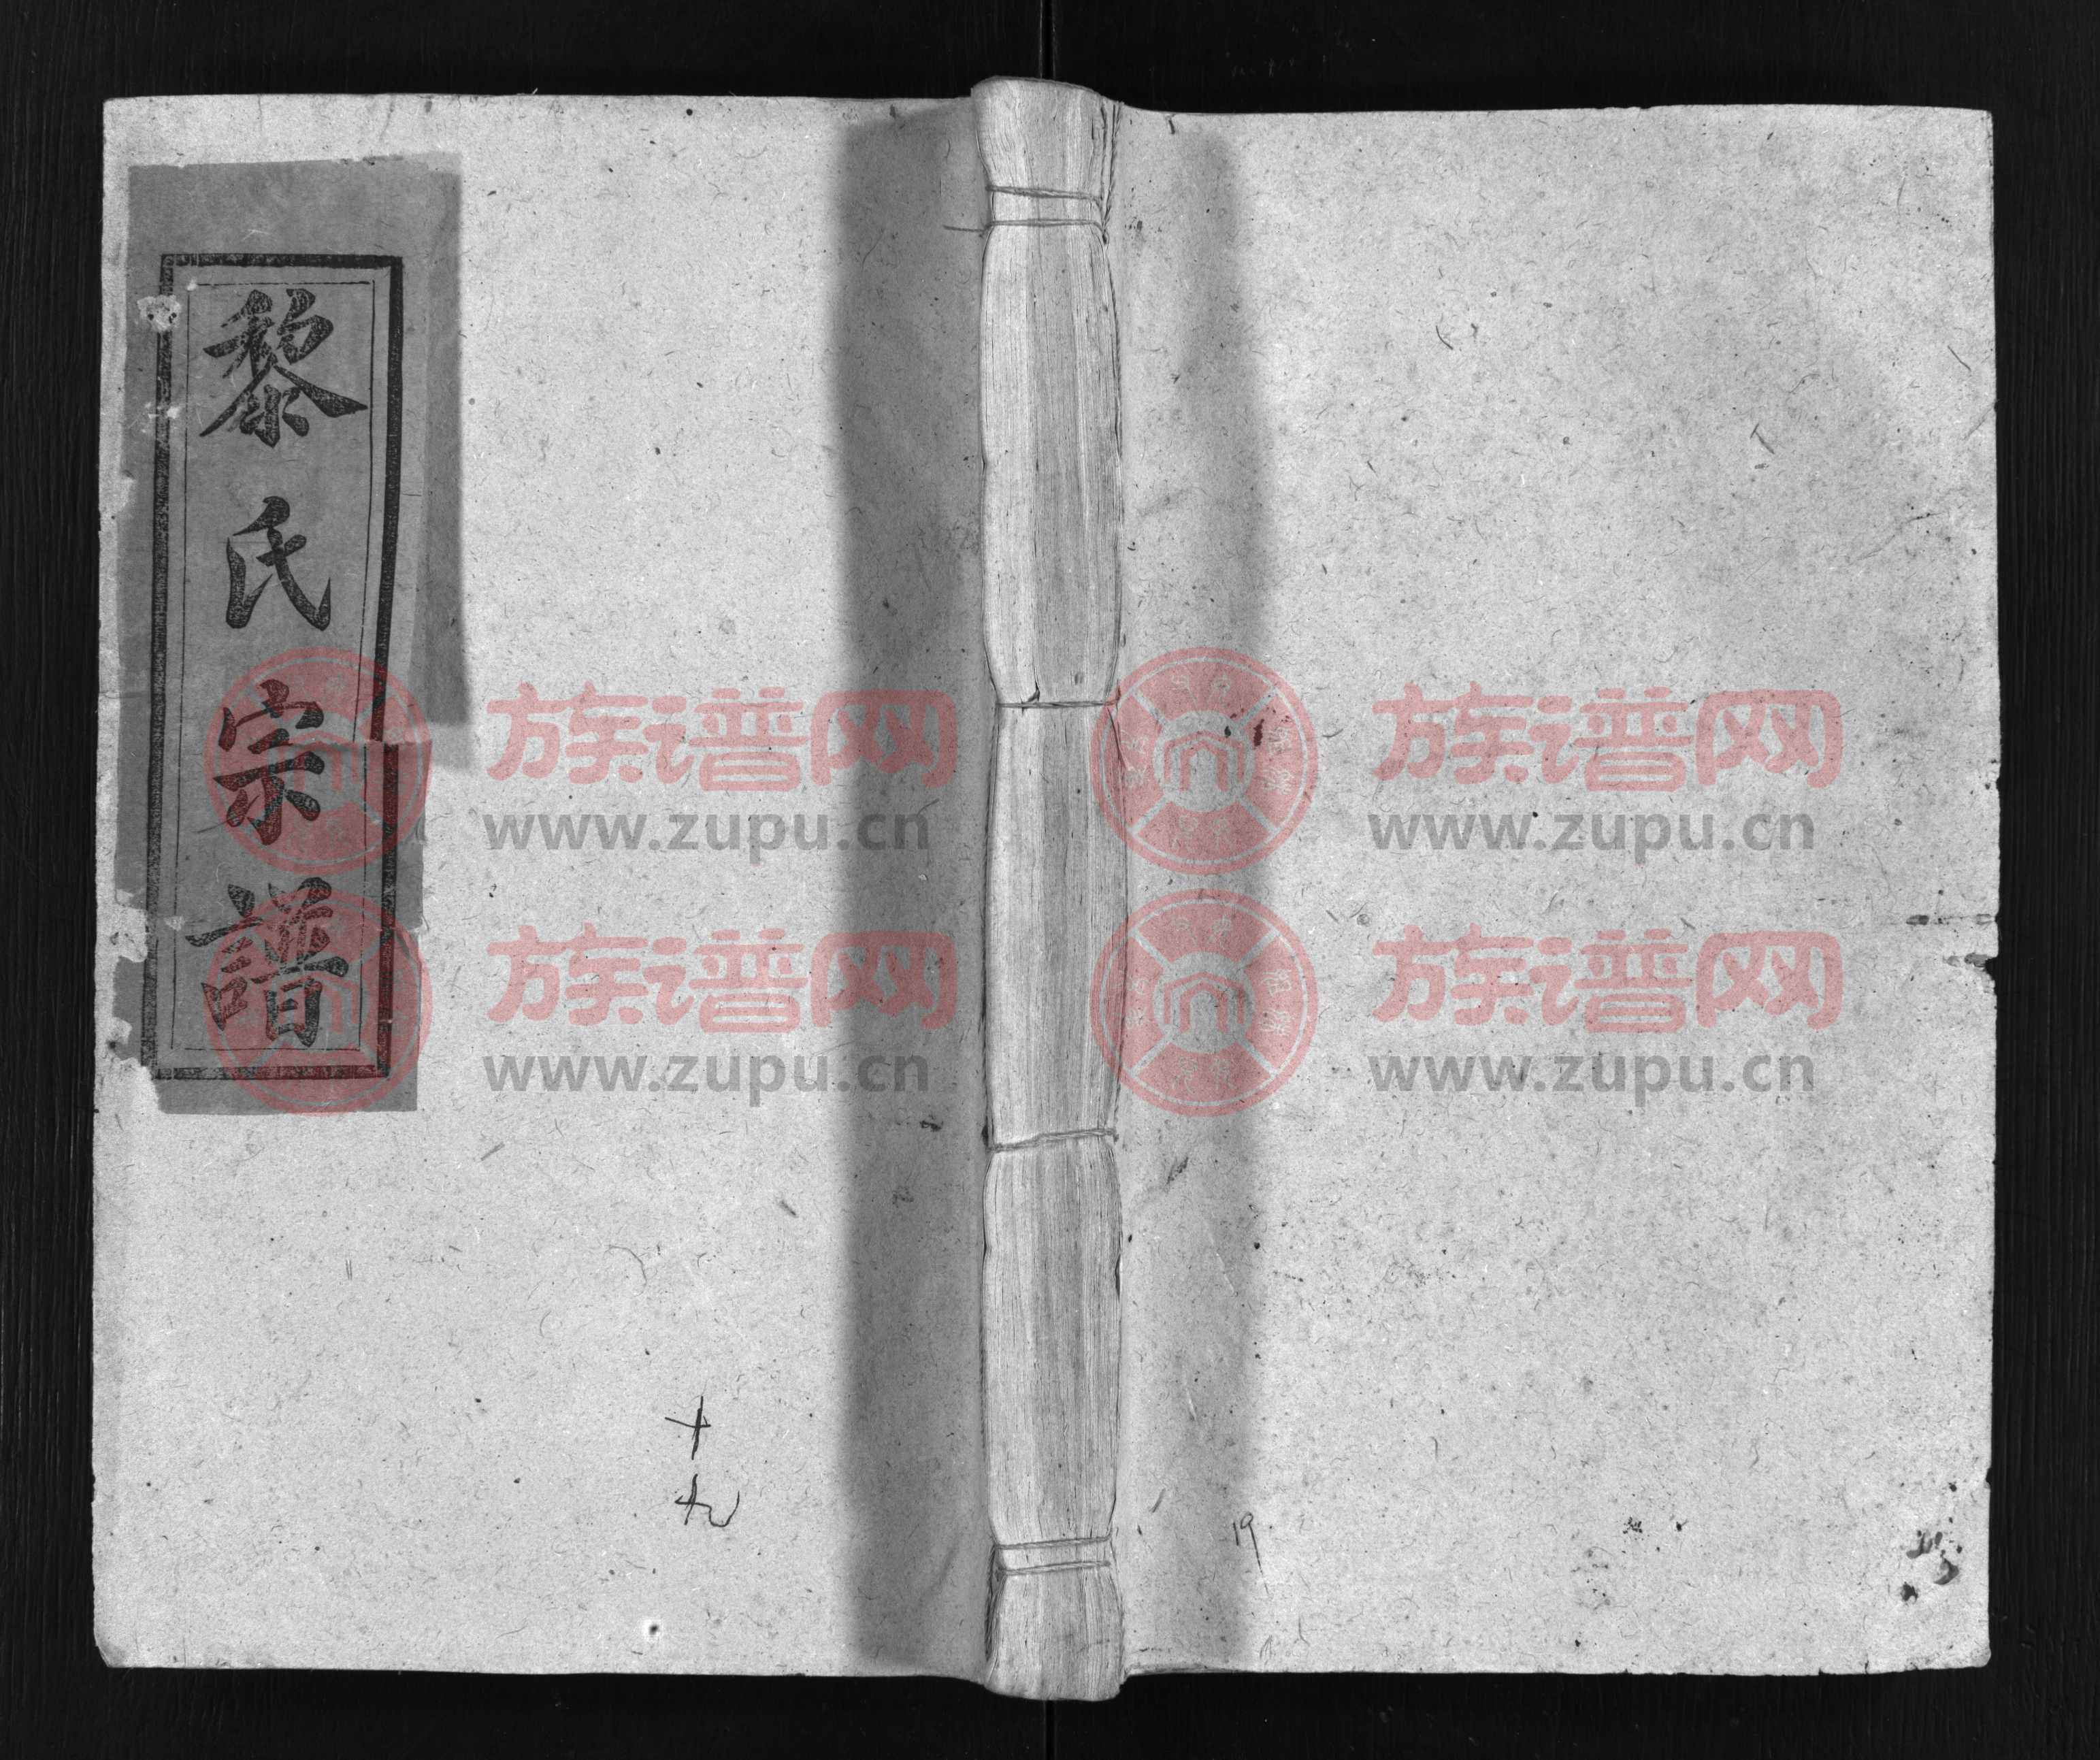 黎氏宗譜
十九
19
族谱网
www.zupu.cn
族谱网
www.zupu.cn
族谱网
www.zupu.cn
族谱网
www.zupu.cn